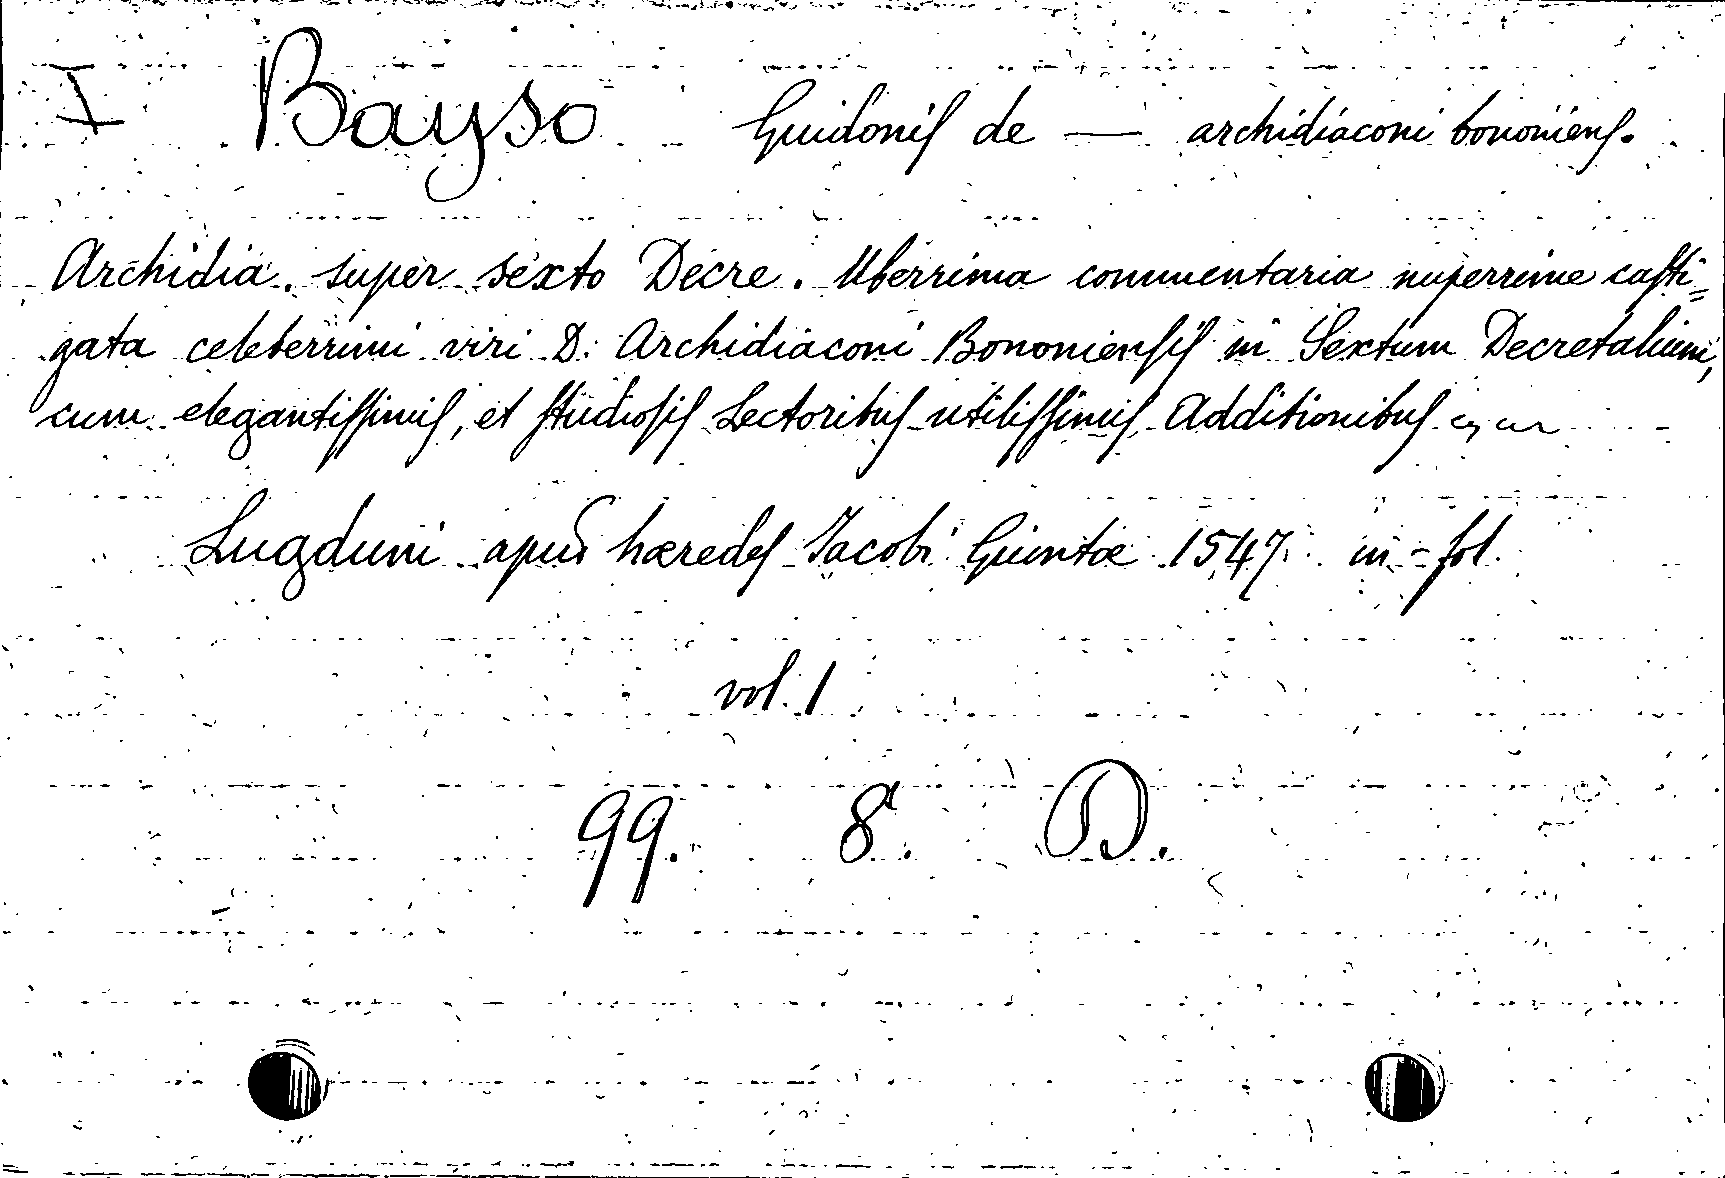 I Bayso Guidonis de — archidiaconi bononiens.
Archidia. super sexto Decre. Uberrima commentaria nuperrime casti=
gata celeberrimi viri D. Archidiaconi Bononiensis in Sextum Decretalium,
cum elegantissimis, et studiosis Lectoribus utilissimis Additionibus
Lugduni apud hæredes Jacobi Giuntæ 1547. in-fol.
vol. 1
99. 8. D.